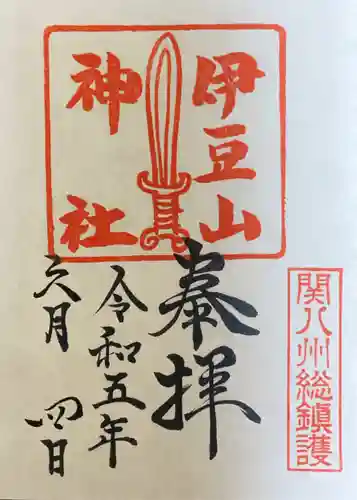 伊豆山
神社
奉拝
令和五年
六月四日
関八州総鎮護